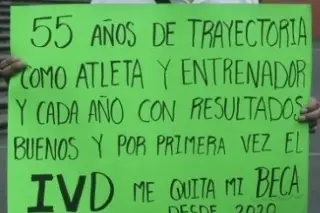 55 AÑOS DE TRAYECTORIA
COMO ATLETA Y ENTRENADOR
Y CADA AÑO CON RESULTADOS
BUENOS Y POR PRIMERA VEZ EL
IVD ME QUITA MI BECA
DESDE 2020